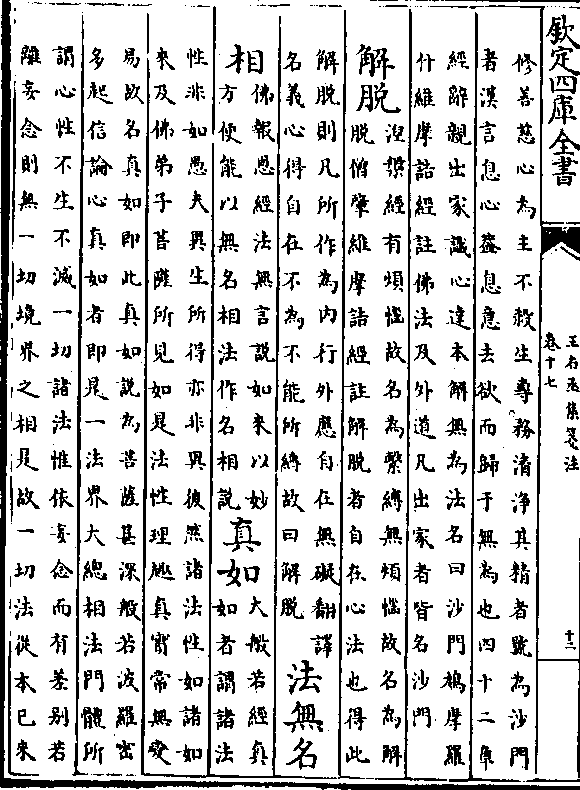 欽定四庫全書
王右丞集箋注
卷十七
十二
修善慈心為主不殺生專務清净其精者號為沙門
者漢言息心葢息意去欲而歸于無為也四十二章
經辭親出家識心達本解無為法名曰沙門鳩摩羅
什維摩詰經註佛法及外道凡出家者皆名沙門
解脱涅槃經有煩惱故名為繫縛無煩惱故名為解
脱僧肇維摩詰經註解脱者自在心法也得此
解脱則凡所作為内行外應自在無礙翻譯
名義心得自在不為不能所縛故曰解脱法無名
相佛報恩經法無言説如來以妙
方便能以無名相法作名相説真如大般若經真
如者謂諸法
性非如愚夫異生所得亦非異彼然諸法性如諸如
來及佛弟子菩薩所見如是法性理趣真實常無變
易故名真如即此真如説為菩薩甚深般若波羅密
多起信論心真如者即是一法界大總相法門體所
謂心性不生不滅一切諸法惟依妄念而有差别若
離妄念則無一切境界之相是故一切法從本已來